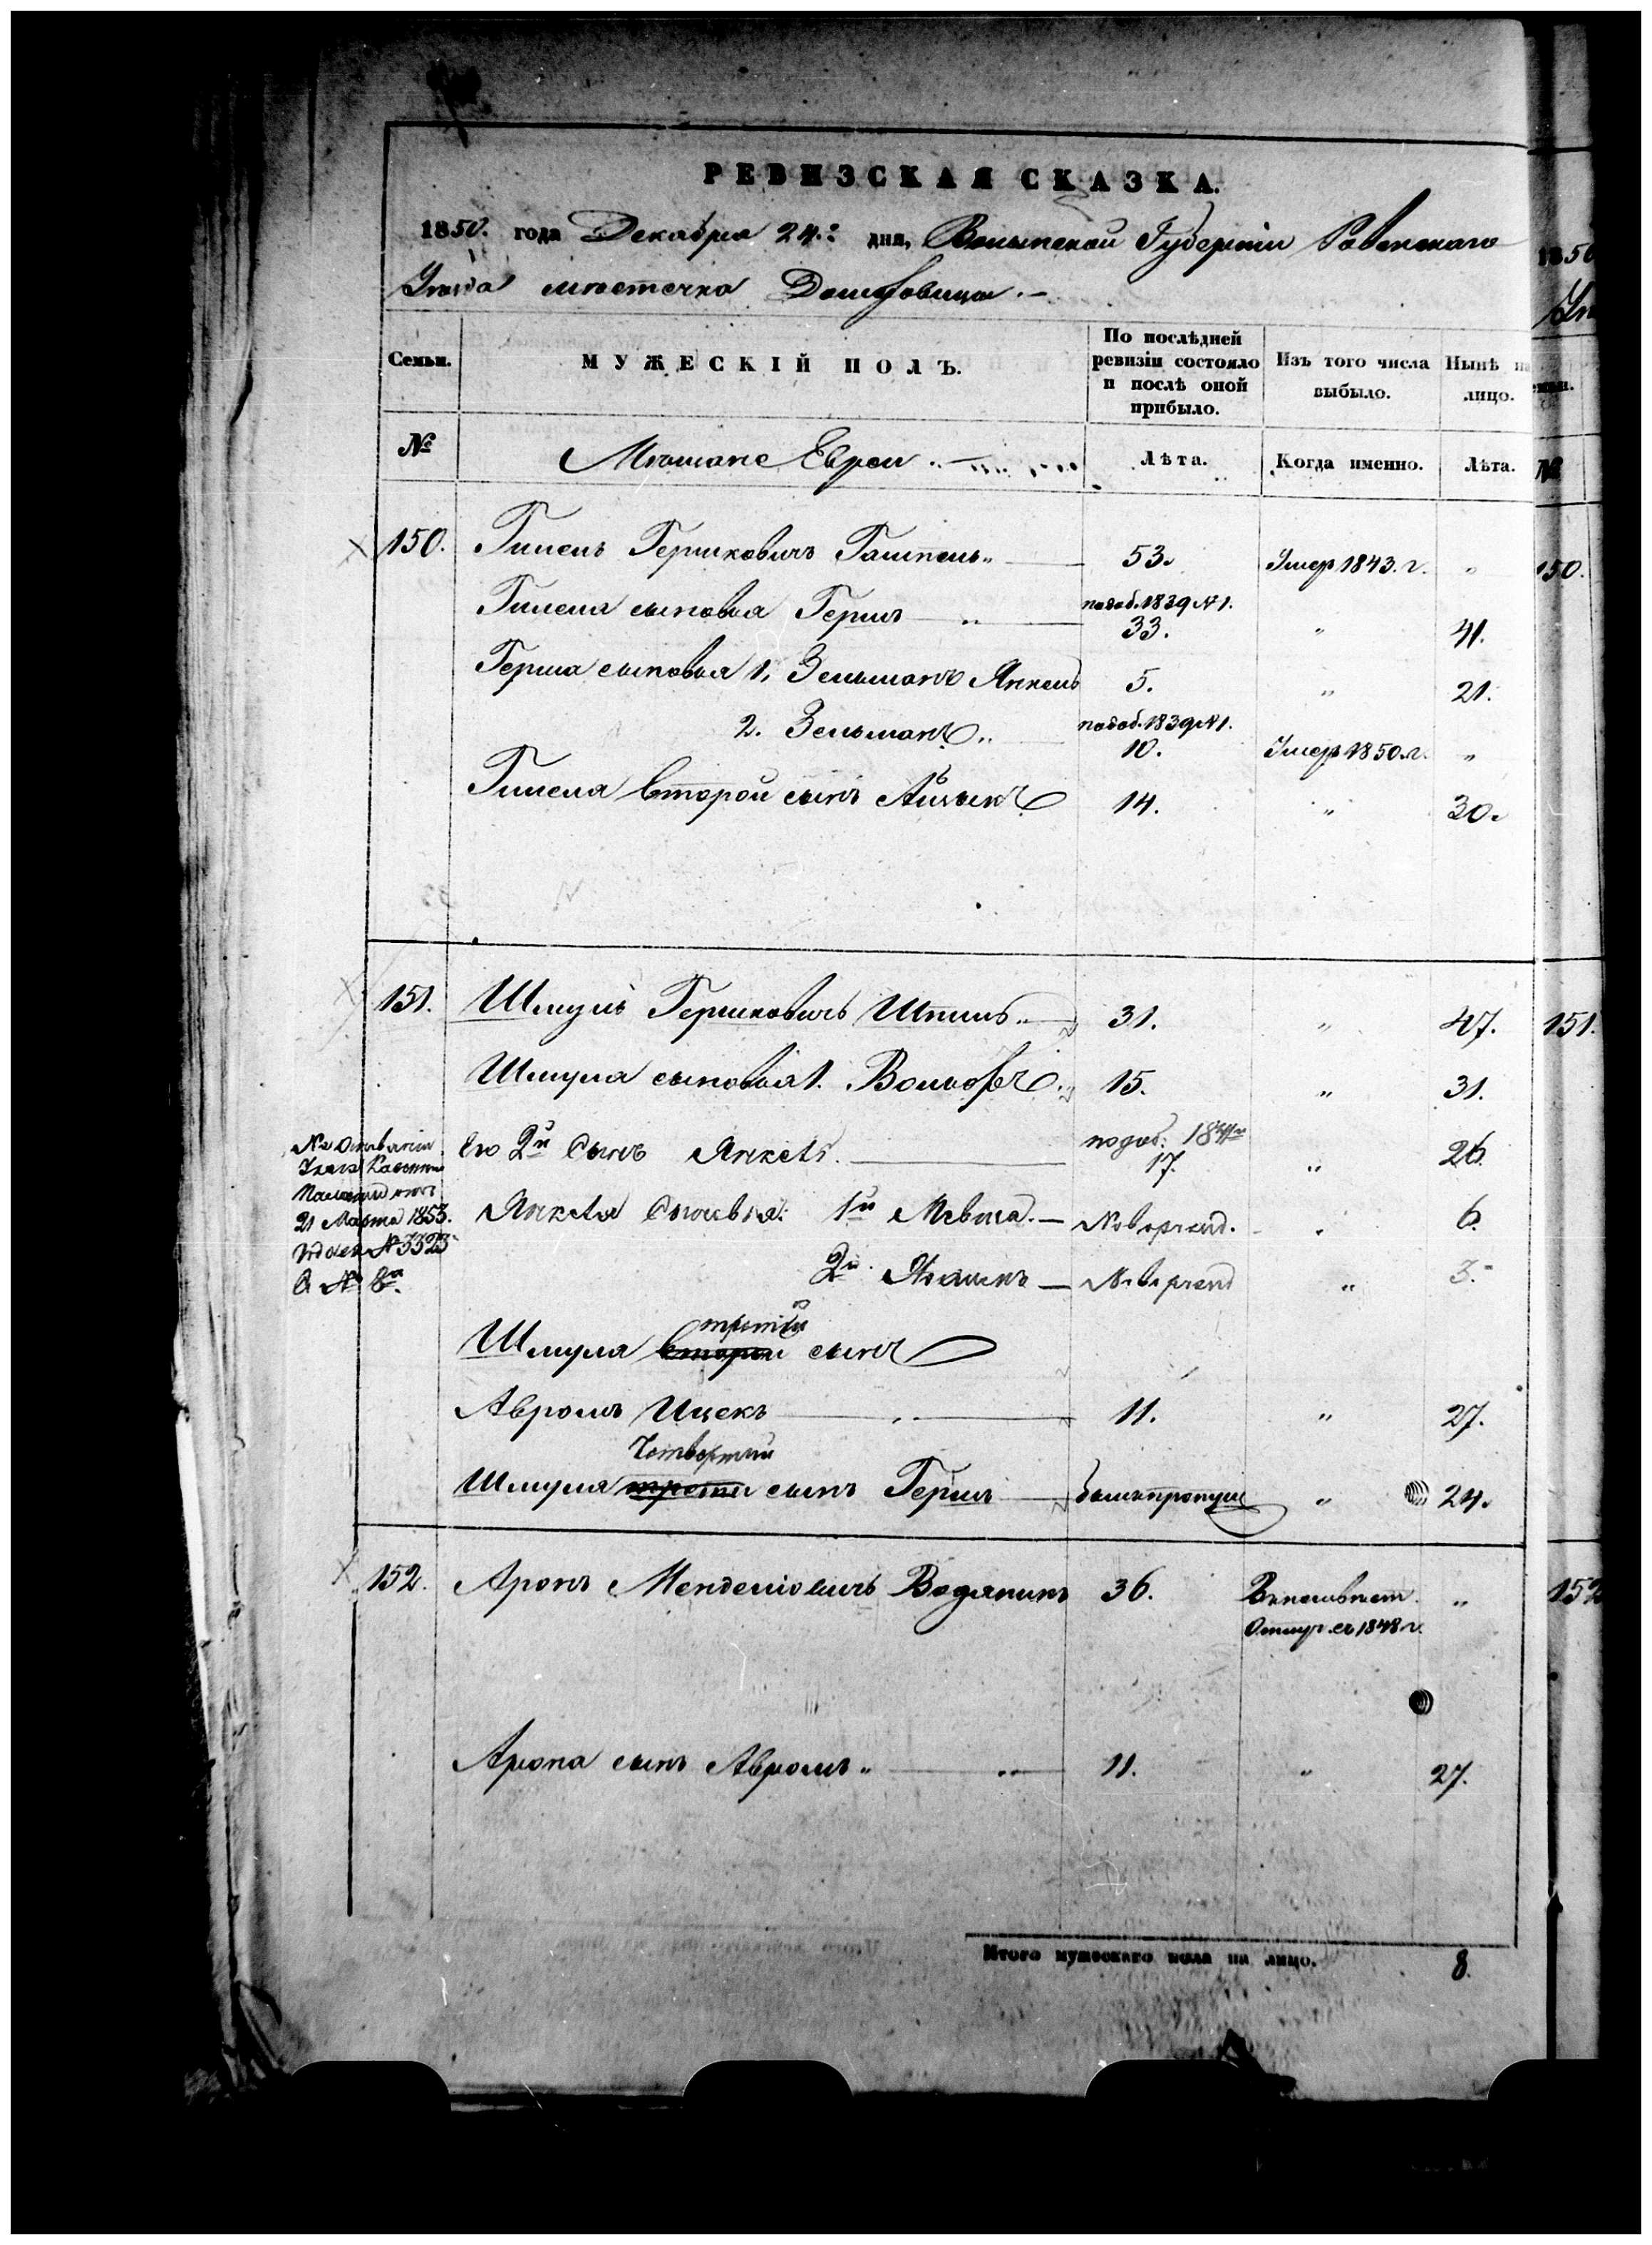 РЕВИЗСКАЯ СКАЗКА.
1850. года Декабря 24.го дня, Волынской Губерніи Ровенскаго
Уезда местечка Домбровица.
Семьи.
МУЖЕСКІЙ ПОЛЪ.
По послѣдней ревизіи состояло и послѣ оной прибыло.
Изъ того числа выбыло.
Нынѣ на лицо.
№
Мѣщане Евреи
Лѣта.
Когда именно.
Лѣта.
150. Гилель Гершковичъ 53. Умеръ 1843. г. "
Гилеля сыновья Гершъ подоб. 1839 №1. 33. " 41.
Герша сыновья 1, Зельманъ Янкель 5. " 21.
2. Зельманъ подоб. 1839 №1. 10. Умеръ 1850. г. "
Гилеля второй сынъ Айзыкъ 14. " 30.
151. Шмуль Гершковичъ Шпиль 31. " 47.
Шмуля сыновья 1. Вольфъ 15. " 31.
Его 2й Сынъ Янкель. подоб. 17. " 26.
На основаніи
Указа Казенной
Палаты отъ
21 Марта 1853.
года №3323
Янкеля Сыновья: 1й — Новорожд. 6.
2й — Новорожд " 3.
Шмуля второй третій сынъ
Авромъ Ицекъ 11. " 27.
Шмуля трети Четвертый сынъ Гершъ былъ пропущ " 24.
152. Аронъ Менделіовичъ Водяникъ 36. Въ неизвѣст. "
Отлуч. съ 1848 г.
Арона сынъ Авромъ 11. " 27.
Итого мужескаго пола на лицо. 8.
1850
№
150.
151.
152